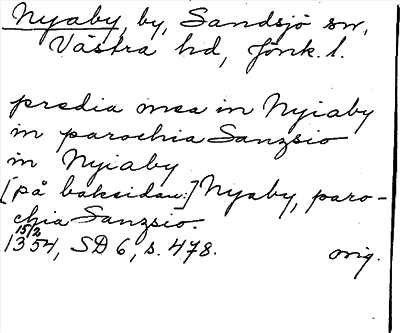 Nyaby, by, Sandsjö sn,
Västra hd, Jönk. l.
predia mea in Nyiaby
in parochia Sanzsio
in Nyiaby
[på baksidan:] Nyaby, paro-
chia Sanzsio.
15/2
1354, SD 6, s. 478. orig.